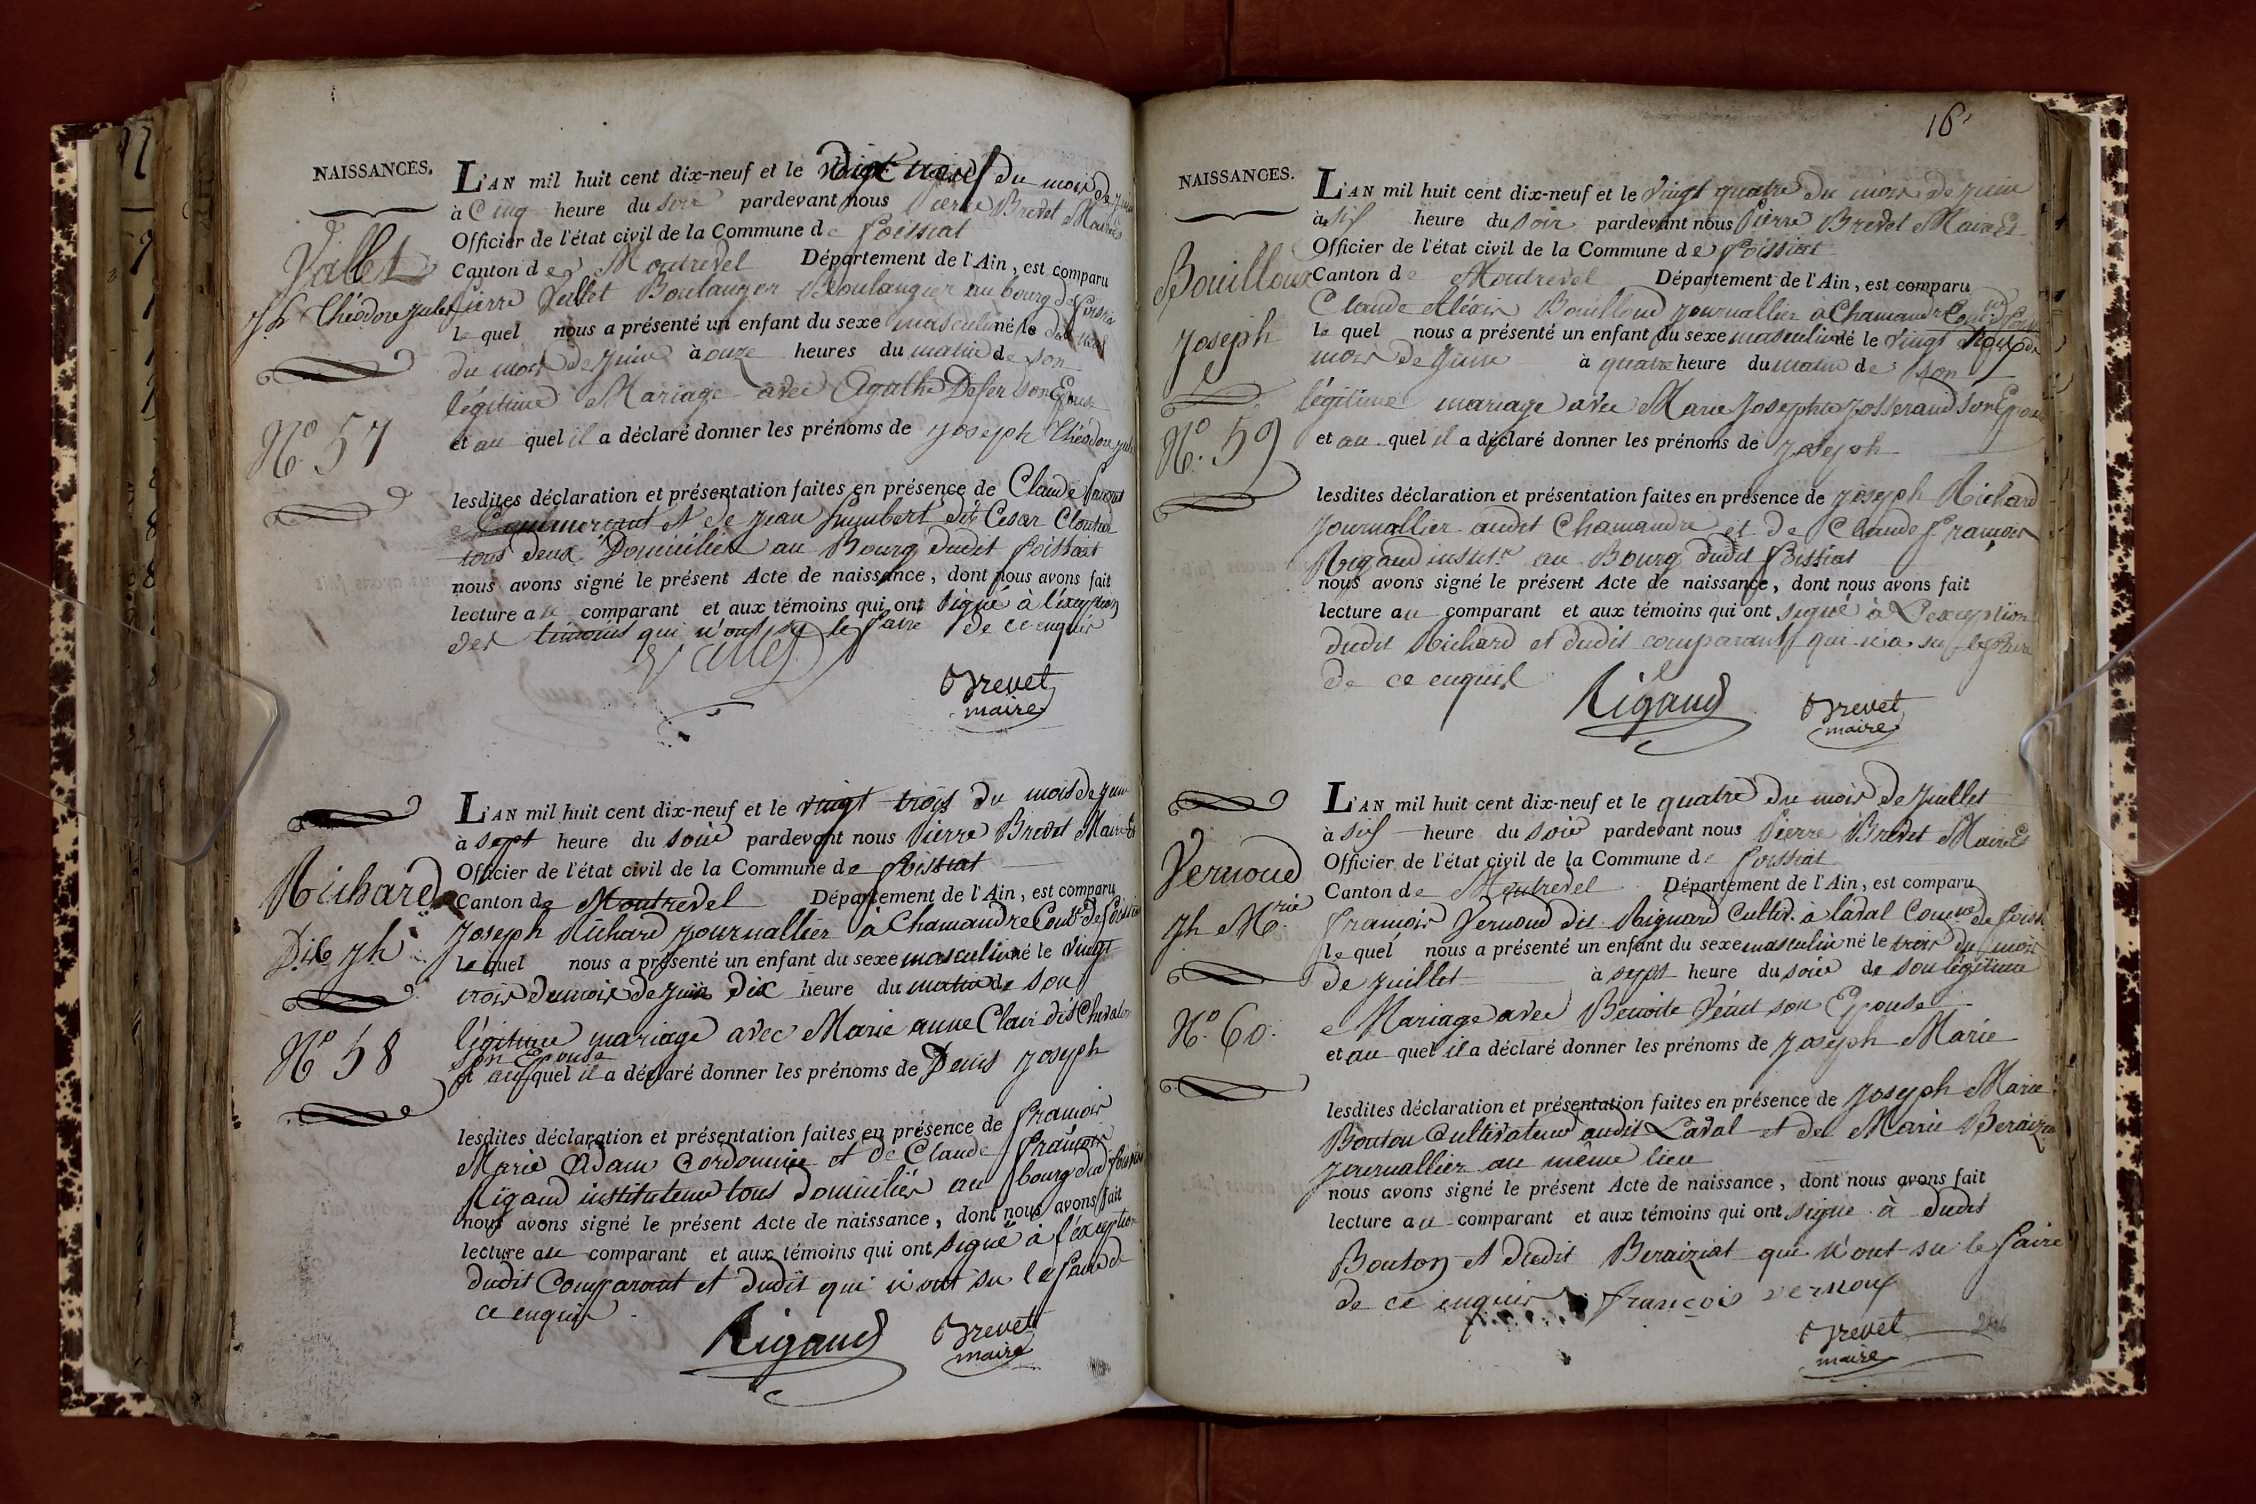 NAISSANCES.
L'AN mil huit cent dix-neuf et le du mois de juin
à Cinq heure du soir pardevant nous Pierre Brevet Maire Et
Officier de l'état civil de la Commune de Foissiat
Canton de Montrevel Département de l'Ain, est comparu
Vallet
Jh Théodore Jules
Pierre Vallet Boulanger au bourg de Foissiat
le quel nous a présenté un enfant du sexe masculin né le
du mois de juin à onze heures du matin de son
légitime Mariage avec Agathe Defer son Epouse
N° 57
et au quel il a déclaré donner les prénoms de Joseph Théodore Jules
lesdites déclaration et présentation faites en présence de Claude
Commercant et de Jean Humbert dit Cesar Cloutier
tous deux Domiciliés au Bourg dudit Foissiat
nous avons signé le présent Acte de naissance, dont nous avons fait
lecture au comparant et aux témoins qui ont signé à l'éxception
des témoins qui n'ont su le faire de ce enquis
Vallet
Brevet
maire
L'AN mil huit cent dix-neuf et le vingt trois du mois de juin
à sept heure du soir pardevant nous Pierre Brevet Maire Et
Officier de l'état civil de la Commune de Foissiat
Richard
Canton de Montrevel Département de l'Ain, est comparu
Joseph Richard journallier à Chamandre Comne de Foissiat
Dis Jh
le quel nous a présenté un enfant du sexe masculin né le vingt
trois du mois de juin dix heure du matin de son
légitime mariage avec Marie anne Clair dit Chevalon
N° 58
son Epouse
et au quel il a déclaré donner les prénoms de Denis Joseph
lesdites déclaration et présentation faites en présence de francois
Marie Adam Cordonnier et de Claude francois
Rigaud instituteur tous domiciliés au bourg dud. foissiat
nous avons signé le présent Acte de naissance, dont nous avons fait
lecture au comparant et aux témoins qui ont signé à l'éxception
dudit Comparant et dudit qui n'ont su le faire de
ce enquis
Rigaud
Brevet
maire
16
NAISSANCES.
L'AN mil huit cent dix-neuf et le vingt quatre du mois de juin
à six heure du soir pardevant nous Pierre Brevet Maire Et
Officier de l'état civil de la Commune de Foissiat
Bouilloux
Canton de Montrevel Département de l'Ain, est comparu
Claude Aléxis Bouilloud journallier à Chamandre
Joseph
le quel nous a présenté un enfant du sexe masculin né le vingt
mois de Juin à quatre heure du matin de son
légitime mariage avec Marie Josephte Josserand son Epouse
N° 59
et au quel il a déclaré donner les prénoms de Joseph
lesdites déclaration et présentation faites en présence de Joseph Richard
Journallier audit Chamandre et de Claude François
Rigaud instr. au Bourg dudit foissiat
nous avons signé le présent Acte de naissance, dont nous avons fait
lecture au comparant et aux témoins qui ont signé à L'exception
dudit Richard et dudit comparant qui n'a su le faire
de ce enquis
Rigaud
Brevet
maire
L'AN mil huit cent dix-neuf et le quatre du mois de juillet
à six heure du soir pardevant nous Pierre Brevet Maire Et
Officier de l'état civil de la Commune de Foissiat
Vernoud
Canton de Montrevel Département de l'Ain, est comparu
Jh Mrie
francois Vernoud dit Riguard Cultiv. à Laval Comne de foissi
le quel nous a présenté un enfant du sexe masculin né le trois du mois
de juillet à sept heure du soir de son légitime
Mariage avec Benoite son Epouse
N° 60.
et au quel il a déclaré donner les prénoms de Joseph Marie
lesdites déclaration et présentation faites en présence de Joseph Marie
Bouton Cultivateur audit Laval et de Marie Beraiziat
journallier au même lieu
nous avons signé le présent Acte de naissance, dont nous avons fait
lecture au comparant et aux témoins qui ont signé à dudit
Bouton et dudit Beraiziat qui n'ont su le faire
de ce enquis françois vernoux
Brevet
maire